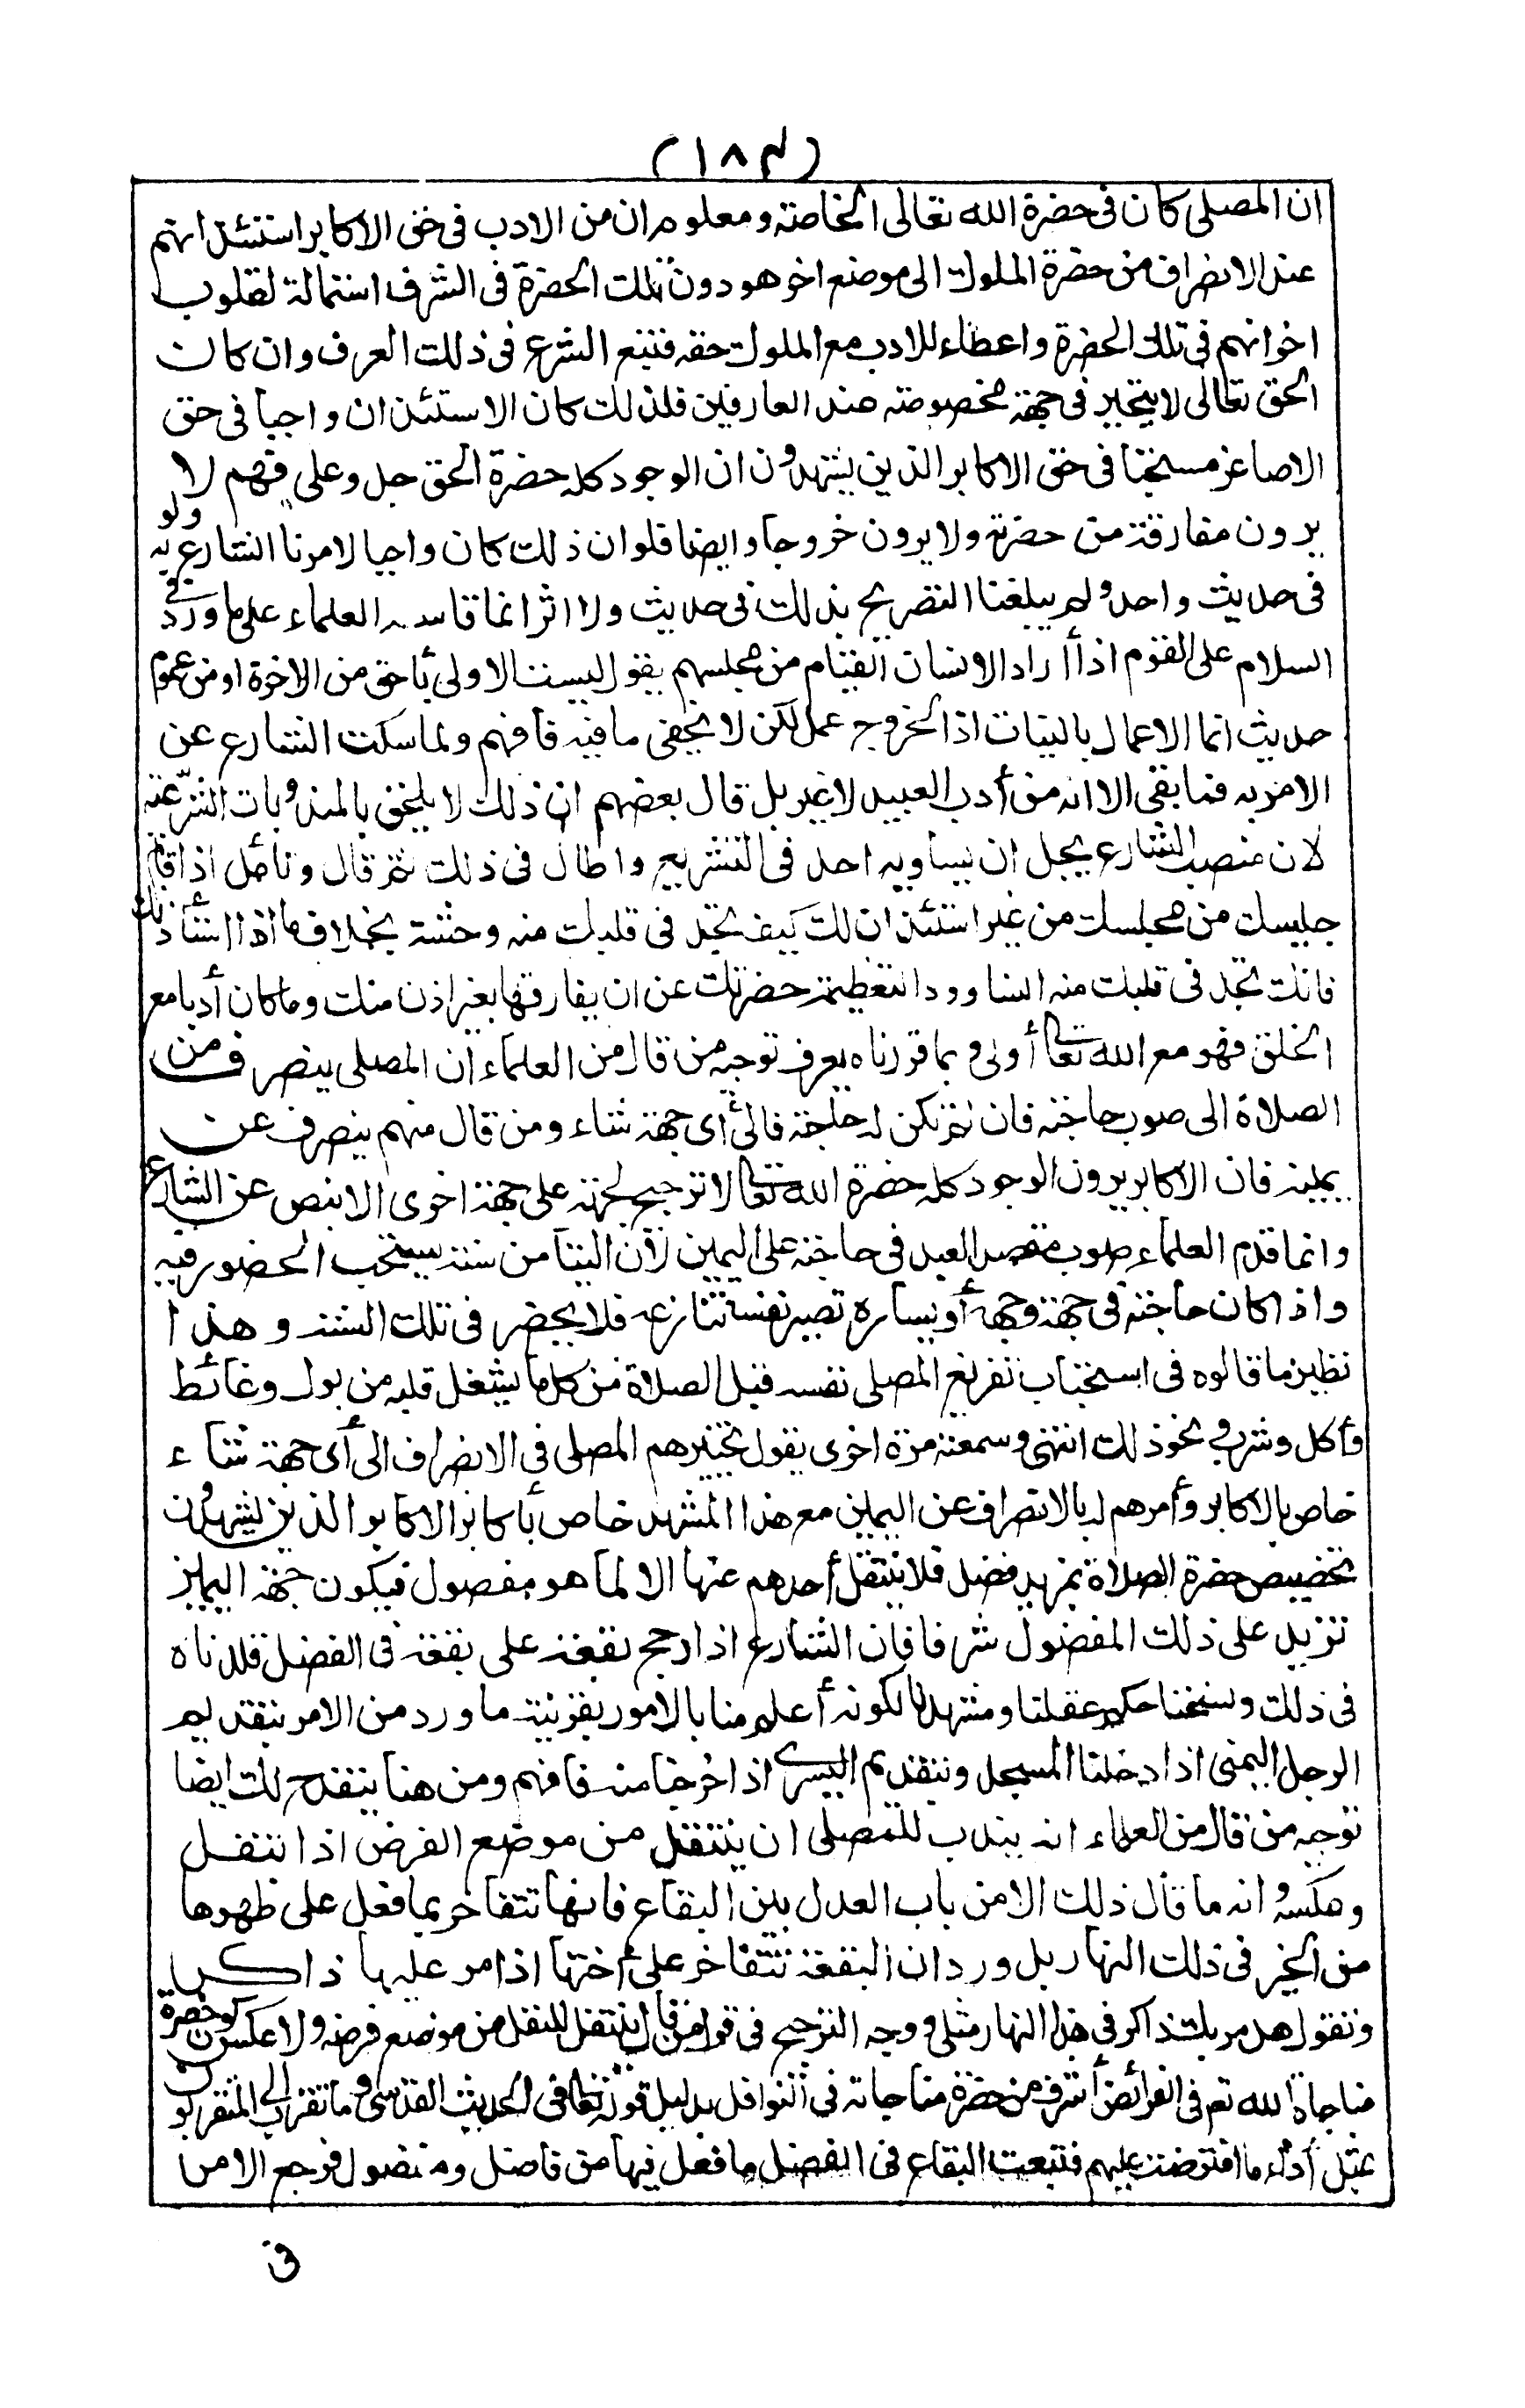 (١٨٤)
ان المصلى كان فى حضرة الله تعالى الخاصة ومعلوم ان من الادب فى حق الاكابر استئذانهم
عند الانصراف من حضرة الملوك الى موضع اخر هو دون تلك الحضرة فى الشرف استمالة لقلوب
اخوانهم فى تلك الحضرة واعطاء للادب مع الملوك حقه فتبع الشرع فى ذلك العرف وان كان
الحق تعالى لا يتحيز فى جهة مخصوصة عند العارفين فلذلك كان الاستئذان واجبا فى حق
الاصاغر مستحبا فى حق الاكابر الذين يشهدون ان الوجود كله حضرة الحق جل وعلى فهم لا
يرون مفارقة من حضرته ولا يرون خروجا وايضا فلو ان ذلك كان واجبا لامرنا الشارع به ولو
فى حديث واحد ولم يبلغنا التصريح بذلك فى حديث ولا اثر انما قاسه العلماء على ما ورد فى
السلام على القوم اذا أراد الانسان القيام من مجلسهم بقول ليست الاولى بأحق من الاخرة او من عموم
حديث انما الاعمال بالنيات اذ الخروج عمل لكن لا يخفى ما فيه فافهم ولما سكت الشارع عن
الامر به فما بقى الا انه من أدب العبيد لا غير بل قال بعضهم ان ذلك لا يلحق بالمندوبات الشرعية
لان منصب الشارع يجل ان يساويه احد فى التشريع واطال فى ذلك ثم قال وتأمل اذا قام
جليسك من مجلسك من غير استئذان لك كيف تجد فى قلبك منه وحشة بخلاف ما اذا استأذنك
فانك تجد فى قلبك منه انسا وودا لتعظيمه حضرتك عن ان يفارقها بغير اذن منك وما كان أدبا مع
الخلق فهو مع الله تعالى أولى وبما قررناه يعرف توجيه من قال من العلماء ان المصلى ينصرف من
الصلاة الى صوب حاجته فان لم تكن له حاجة فالى أى جهة شاء ومن قال منهم ينصرف عن
يمينه فان الاكابر يرون الوجود كله حضرة الله تعالى لا ترجيح لجهة على جهة اخرى الا بنص عن الشارع
وانما قدم العلماء صوب مقصد العبد فى حاجته على اليمين لان التيامن سنة يستحب الحضور فيه
واذا كان حاجته فى جهة وجهه أو يساره تصير نفسه تنازعه فلا يحضر فى تلك السنة وهذا
نظير ما قالوه فى استحباب تفريغ المصلى نفسه قبل الصلاة من كل ما يشغل قلبه من بول وغائط
وأكل وشرب ونحو ذلك انتهى وسمعته مرة اخرى يقول تخييرهم المصلى فى الانصراف الى أى جهة شاء
خاص بالاكابر وأمرهم له بالانصراف عن اليمين مع هذا المشهد خاص بأكابر الاكابر الذين يشهدون
تخصيص حضرة الصلاة بمزيد فضل فلا ينتقل أحدهم عنها الا لما هو مفضول فيكون جهة اليمين
تزيد على ذلك المفضول شرفا فان الشارع اذا رجح بقعة على بقعة فى الفضل قلدناه
فى ذلك ونسخنا حكم عقلنا ومشهدنا لكونه أعلم منا بالامور بقرينة ما ورد من الامر بتقديم
الرجل اليمنى اذا دخلنا المسجد وتقديم اليسرى اذا خرجنا منه فافهم ومن هنا ينقدح لك ايضا
توجيه من قال من العلماء انه يندب للمصلى ان ينتقل من موضع الفرض اذا تنفل
وعكسه وانه ما قال ذلك الا من باب العدل بين البقاع فانها تتفاخر بما فعل على ظهرها
من الخير فى ذلك النهار بل ورد ان البقعة تتفاخر على أختها اذا مر عليها ذاكر
وتقول هل مر بك ذاكر فى هذا النهار مثلى ووجه الترجيح فى قول من قال ينتقل للنفل من موضع فرضه ولا عكس كون حضرة
مناجاة الله تعالى فى الفرائض أشرف من حضرة مناجاته فى النوافل بدليل قوله تعالى فى الحديث القدسى وما تقرب الى المتقربون
بمثل أداء ما افترضت عليهم فتبعت البقاع فى الفضل ما فعل فيها من فاضل ومفضول فرجع الامر
فى